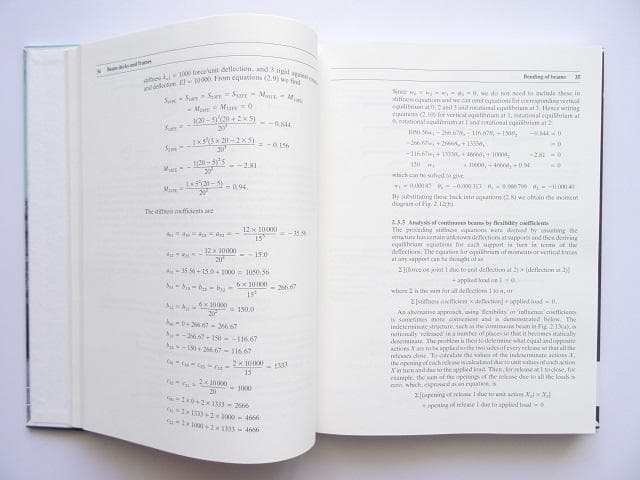 34 Beam decks and frames
stiffness k = 1000 force/unit deflection, and 3 rigid against
and deflection. EI = 10 000. From equations (2.9) we find
= M = M = 0
= − 1(20 − 5)²(20 + 2 × 5) / 20³ = − 0.844
= − 1 × 5²(3 × 20 − 2 × 5) / 20³ = − 0.156
= − 1(20 − 5)² 5 / 20² = − 2.81
= 1 × 5²(20 − 5) / 20² = 0.94.
The stiffness coefficients are
= − 12 × 10 000 / 15³ = − 35.56
= − 12 × 10 000 / 20³ = − 15.0
= 35.56 + 15.0 + 1000 = 1050.56
= 6 × 10 000 / 15² = 266.67
= 6 × 10 000 / 20² = 150.0
= 0 + 266.67 = 266.67
= −266.67 + 150 = −116.67
= −150 + 266.67 = 116.67
= 2 × 10 000 / 15 = 1333
= 2 × 10 000 / 20 = 1000
= 2 × 0 + 2 × 1333 = 2666
= 2 × 1333 + 2 × 1000 = 4666
= 2 × 1000 + 2 × 1333 = 4666
Bending of beams 35
Since w₀ = w₂ = w₃ = φ₃ = 0, we do not need to include these in
stiffness equations and we can omit equations for corresponding vertical
equilibrium at 0, 2 and 3 and rotational equilibrium at 3. Hence writing
equations (2.10) for vertical equilibrium at 1, rotational equilibrium at
0, rotational equilibrium at 1 and rotational equilibrium at 2:
1050.56w₁ − 266.67θ₀ − 116.67θ₁ + 150θ₂ −0.844 = 0
−266.67w₁ + 2666θ₀ + 1333θ₁ = 0
−116.67w₁ + 1333θ₀ + 4666θ₁ + 1000θ₂ −2.81 = 0
150 w₁ + 1000θ₁ + 4666θ₂ + 0.94 = 0
which can be solved to give
w₁ = 0.00087 θ₀ = −0.000313 θ₁ = 0.000799 θ₂ = −0.00040
By substituting these back into equations (2.8) we obtain the moment
diagram of Fig. 2.12(b).
2.3.5 Analysis of continuous beams by flexibility coefficients
The preceding stiffness equations were derived by assuming the
structure has certain unknown deflections at supports and then deriving
equilibrium equations for each support in turn in terms of the
deflections. The equation for equilibrium of moments or vertical forces
at any support can be thought of as
Σ [(force on joint 1 due to unit deflection at 2) × (deflection at 2)]
+ applied load on 1 = 0.
where Σ is the sum for all deflections 1 to n, or
Σ [stiffness coefficient × deflection] + applied load = 0.
An alternative approach, using 'flexibility' or 'influence' coefficients
is sometimes more convenient and is demonstrated below. The
indeterminate structure, such as the continuous beam in Fig. 2.13(a), is
notionally 'released' in a number of places so that it becomes statically
determinate. The problem is then to determine what equal and opposite
actions X are to be applied to the two sides of every release so that all the
releases close. To calculate the values of the indeterminate actions X,
the opening of each release is calculated due to unit values of each action
X in turn and due to the applied load. Then, for release at 1 to close, for
example, the sum of the openings of the release due to all the loads is
zero, which, expressed as an equation, is
Σ [(opening of release 1 due to unit action X₂) × X₂]
+ opening of release 1 due to applied load = 0